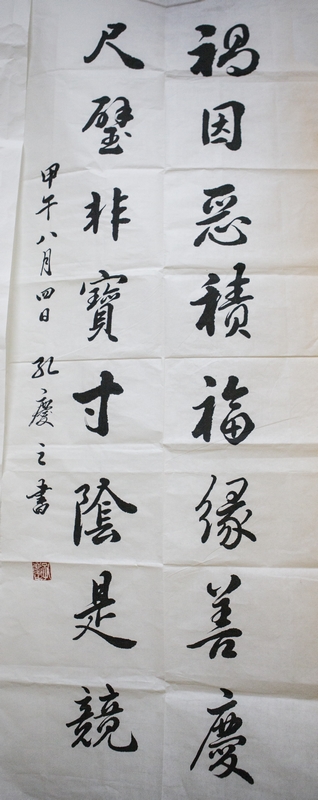 禍因惡積福緣善慶
尺璧非寶寸陰是競
甲午八月四日 孔慶之書